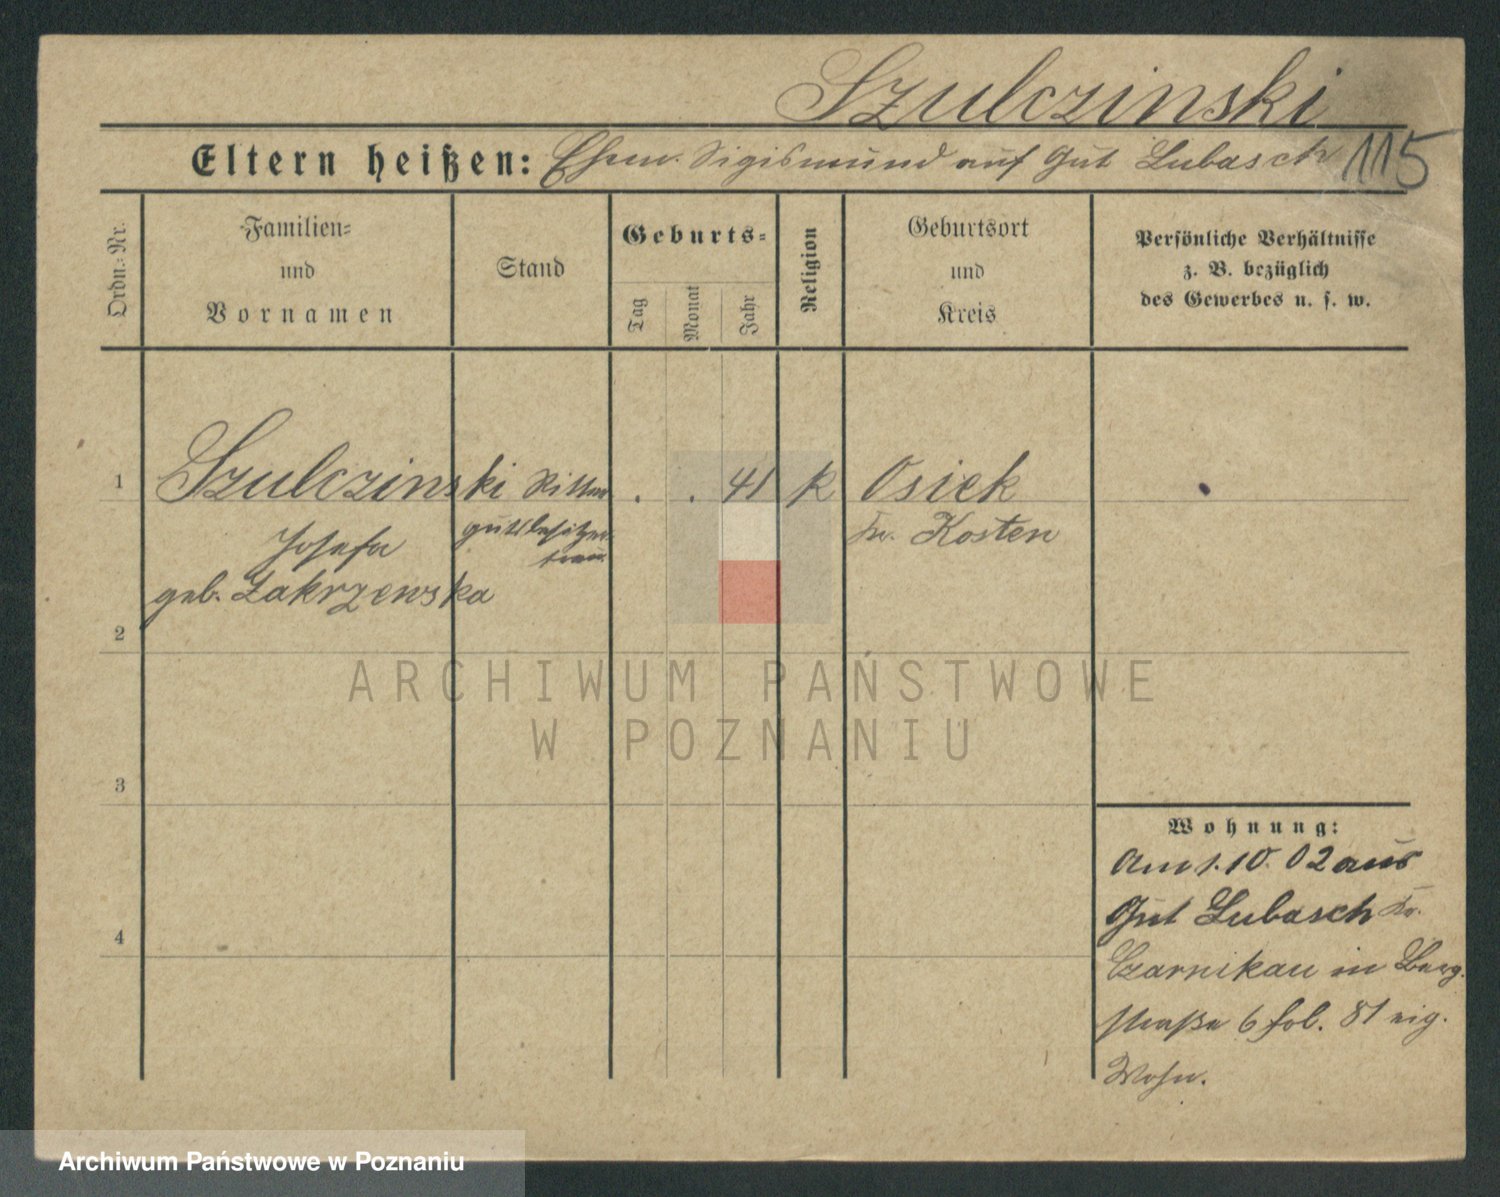 Szulczinski
Eltern heißen: Ehem. Sigismund auf Gut Lubasch 115
Ordn.-Nr.
Familien-
und
Vornamen
Stand
Geburts-
Tag
Monat
Jahr
Religion
Geburtsort
und
Kreis
Persönliche Verhältnisse
z. B. bezüglich
des Gewerbes u. s. w.
1 Szulczinski Ritter . . 41 k Osiek
gutsbesitzer Kr. Kosten
frau
Josefa
geb. Zakrzewska
2
ARCHIWUM PAŃSTWOWE
W POZNANIU
3
Wohnung:
Am 1. 10. 02 aus
Gut Lubasch Kr.
4
Czarnikau in Berg-
straße 6 fol. 81 eig.
Wohn.
Archiwum Państwowe w Poznaniu